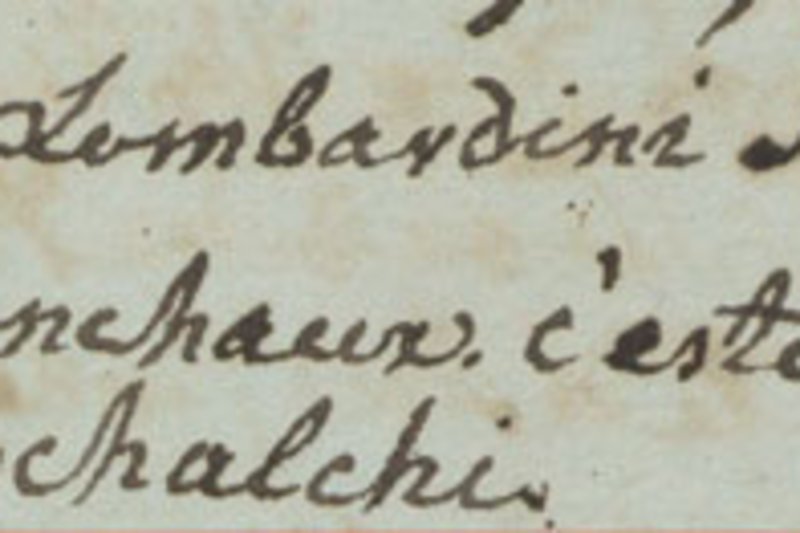 Lombardini
nchaux. c'est
chalchi.